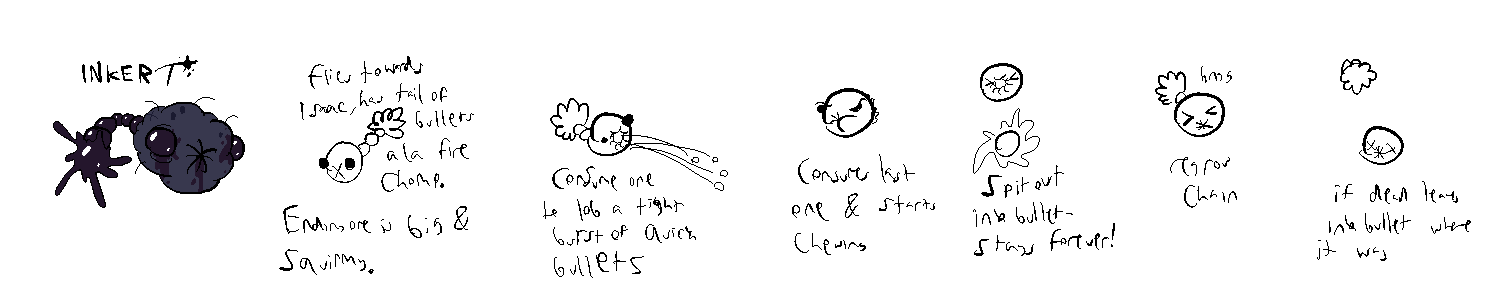 INKERT
Flies towards
Isaac, has tail of
bullets
a la fire
chomp.
End more is big &
Squirmy.
Consume one
to lob a tight
burst of quick
bullets
Consumes last
one & starts
chewing
Spit out
ink bullet-
stays forever!
has
regrow
chain
if dead leaves
ink bullet where
it was